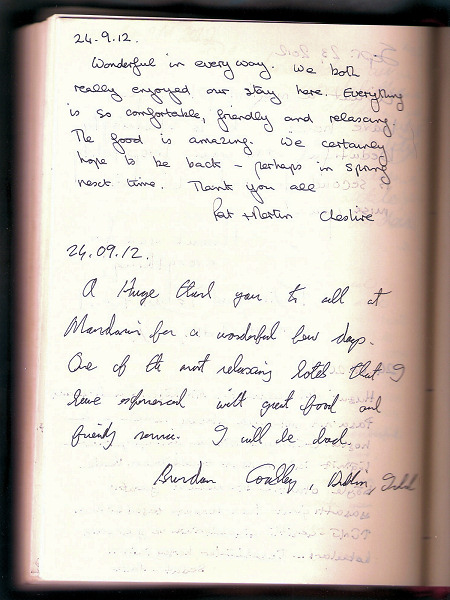 24.9.12.
Wonderful in every way. We both
really enjoyed our stay here. Everything
is so comfortable, friendly and relaxing.
The food is amazing. We certainly
hope to be back - perhaps in spring
next time. Thank you all
Pat + Martin Cheshire
24.09.12.
A Huge thank you to all at
for a wonderful few days.
One of the most relaxing hotels that I
have experienced with great food and
friendly service. I will be back.
Brendan Dublin, Ireland